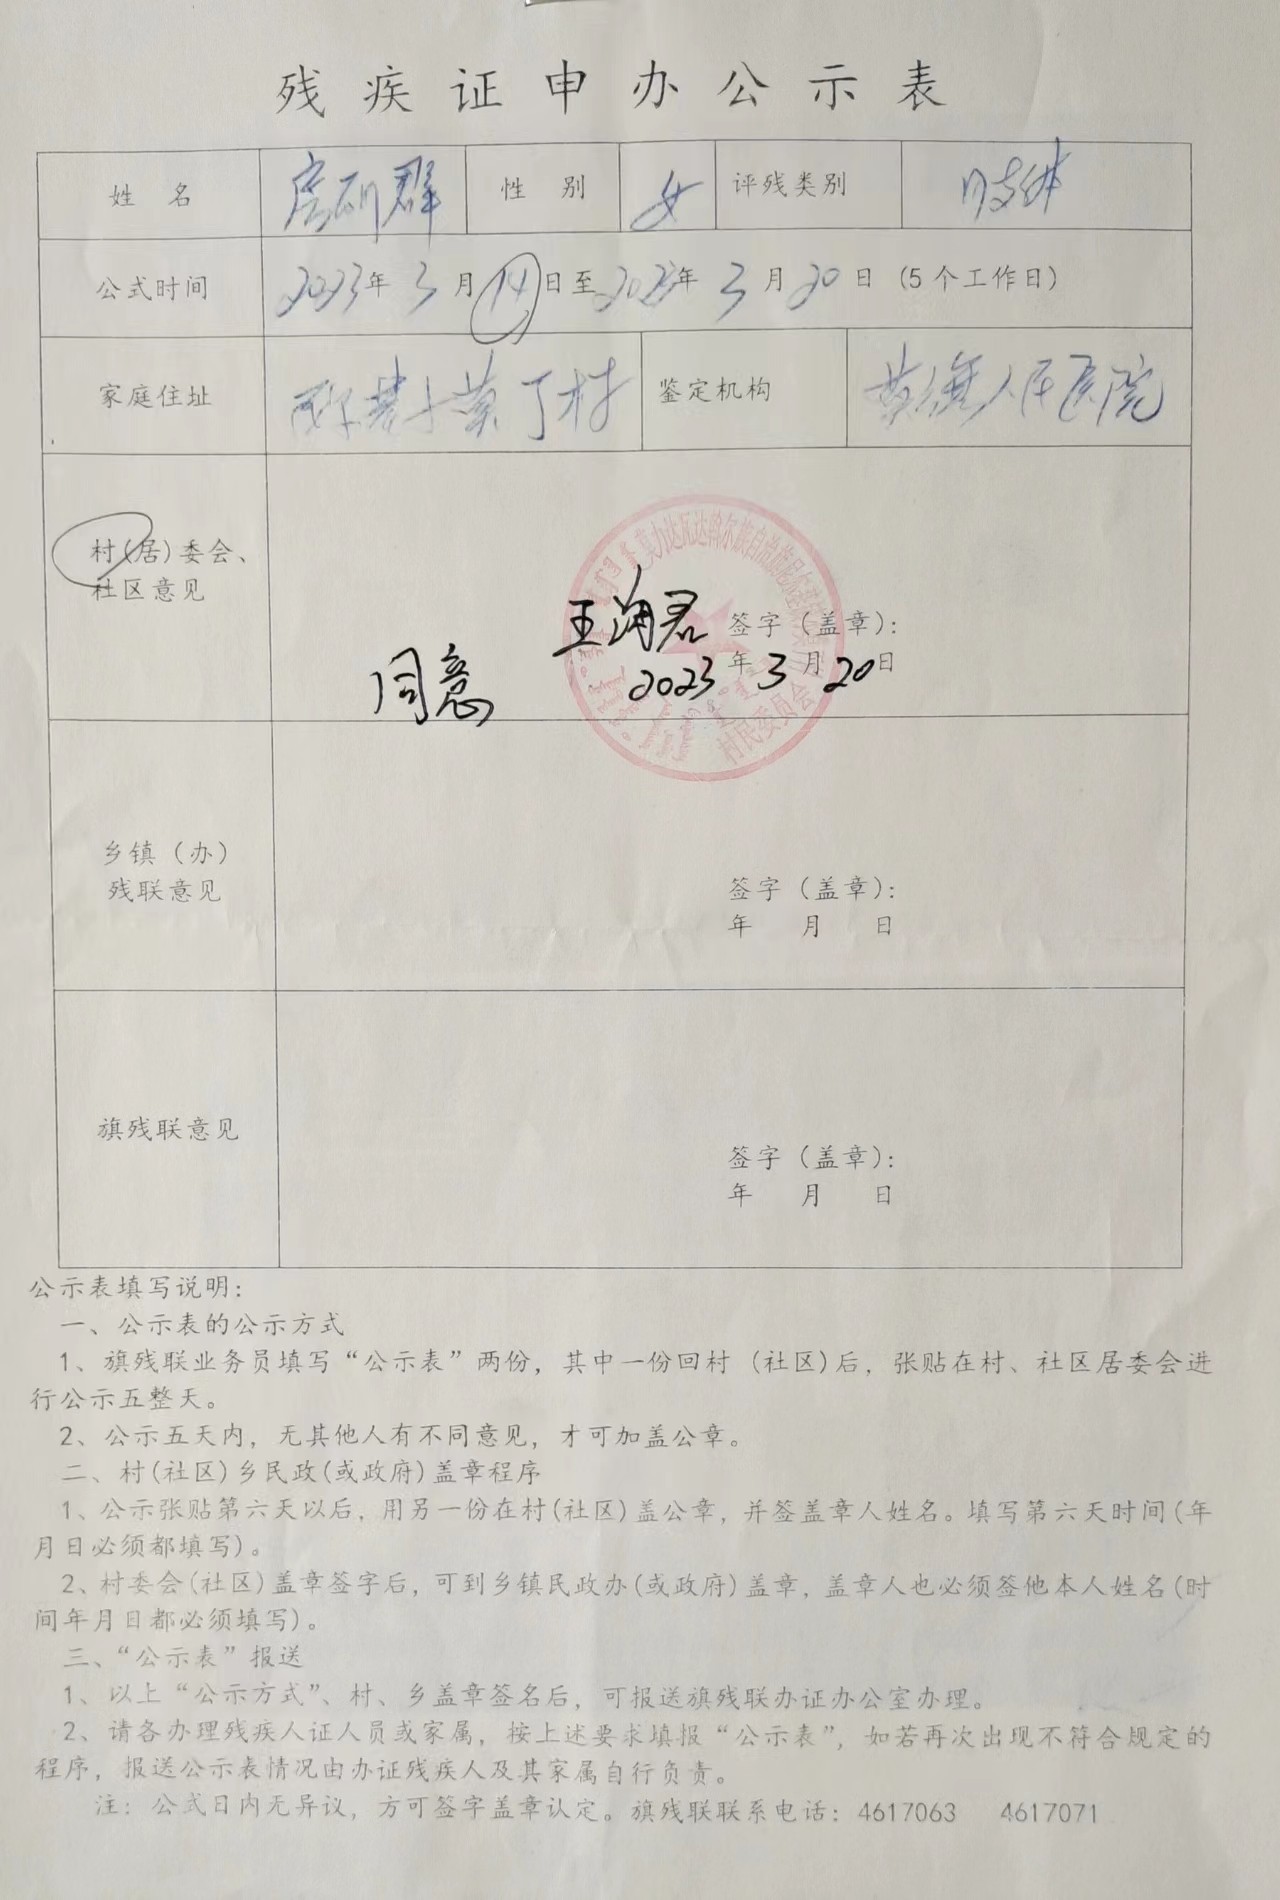 残疾证申办公示表
姓 名 房研群 性 别 女 评残类别 肢体
公式时间 2023年 3月 14日至2023年 3月20日 (5个工作日)
家庭住址 村 鉴定机构 人民医院
村(居)委会、
社区意见
王海君 签字（盖章）：
同意 2023年 3月 20日
莫力达瓦达斡尔族自治旗尼尔基
村民委员会
乡镇（办）
残联意见
签字（盖章）：
年 月 日
旗残联意见
签字（盖章）：
年 月 日
公示表填写说明：
一、公示表的公示方式
1、旗残联业务员填写“公示表”两份，其中一份回村（社区)后，张贴在村、社区居委会进
行公示五整天。
2、公示五天内，无其他人有不同意见，才可加盖公章。
二、村(社区)乡民政(或政府)盖章程序
1、公示张贴第六天以后，用另一份在村(社区)盖公章，并签盖章人姓名。填写第六天时间(年
月日必须都填写)。
2、村委会(社区)盖章签字后，可到乡镇民政办(或政府)盖章，盖章人也必须签他本人姓名(时
间年月日都必须填写)。
三、“公示表”报送
1、以上“公示方式”、村、乡盖章签名后，可报送旗残联办证办公室办理。
2、请各办理残疾人证人员或家属，按上述要求填报“公示表”，如若再次出现不符合规定的
程序，报送公示表情况由办证残疾人及其家属自行负责。
注：公式日内无异议，方可签字盖章认定。旗残联联系电话：4617063 4617071